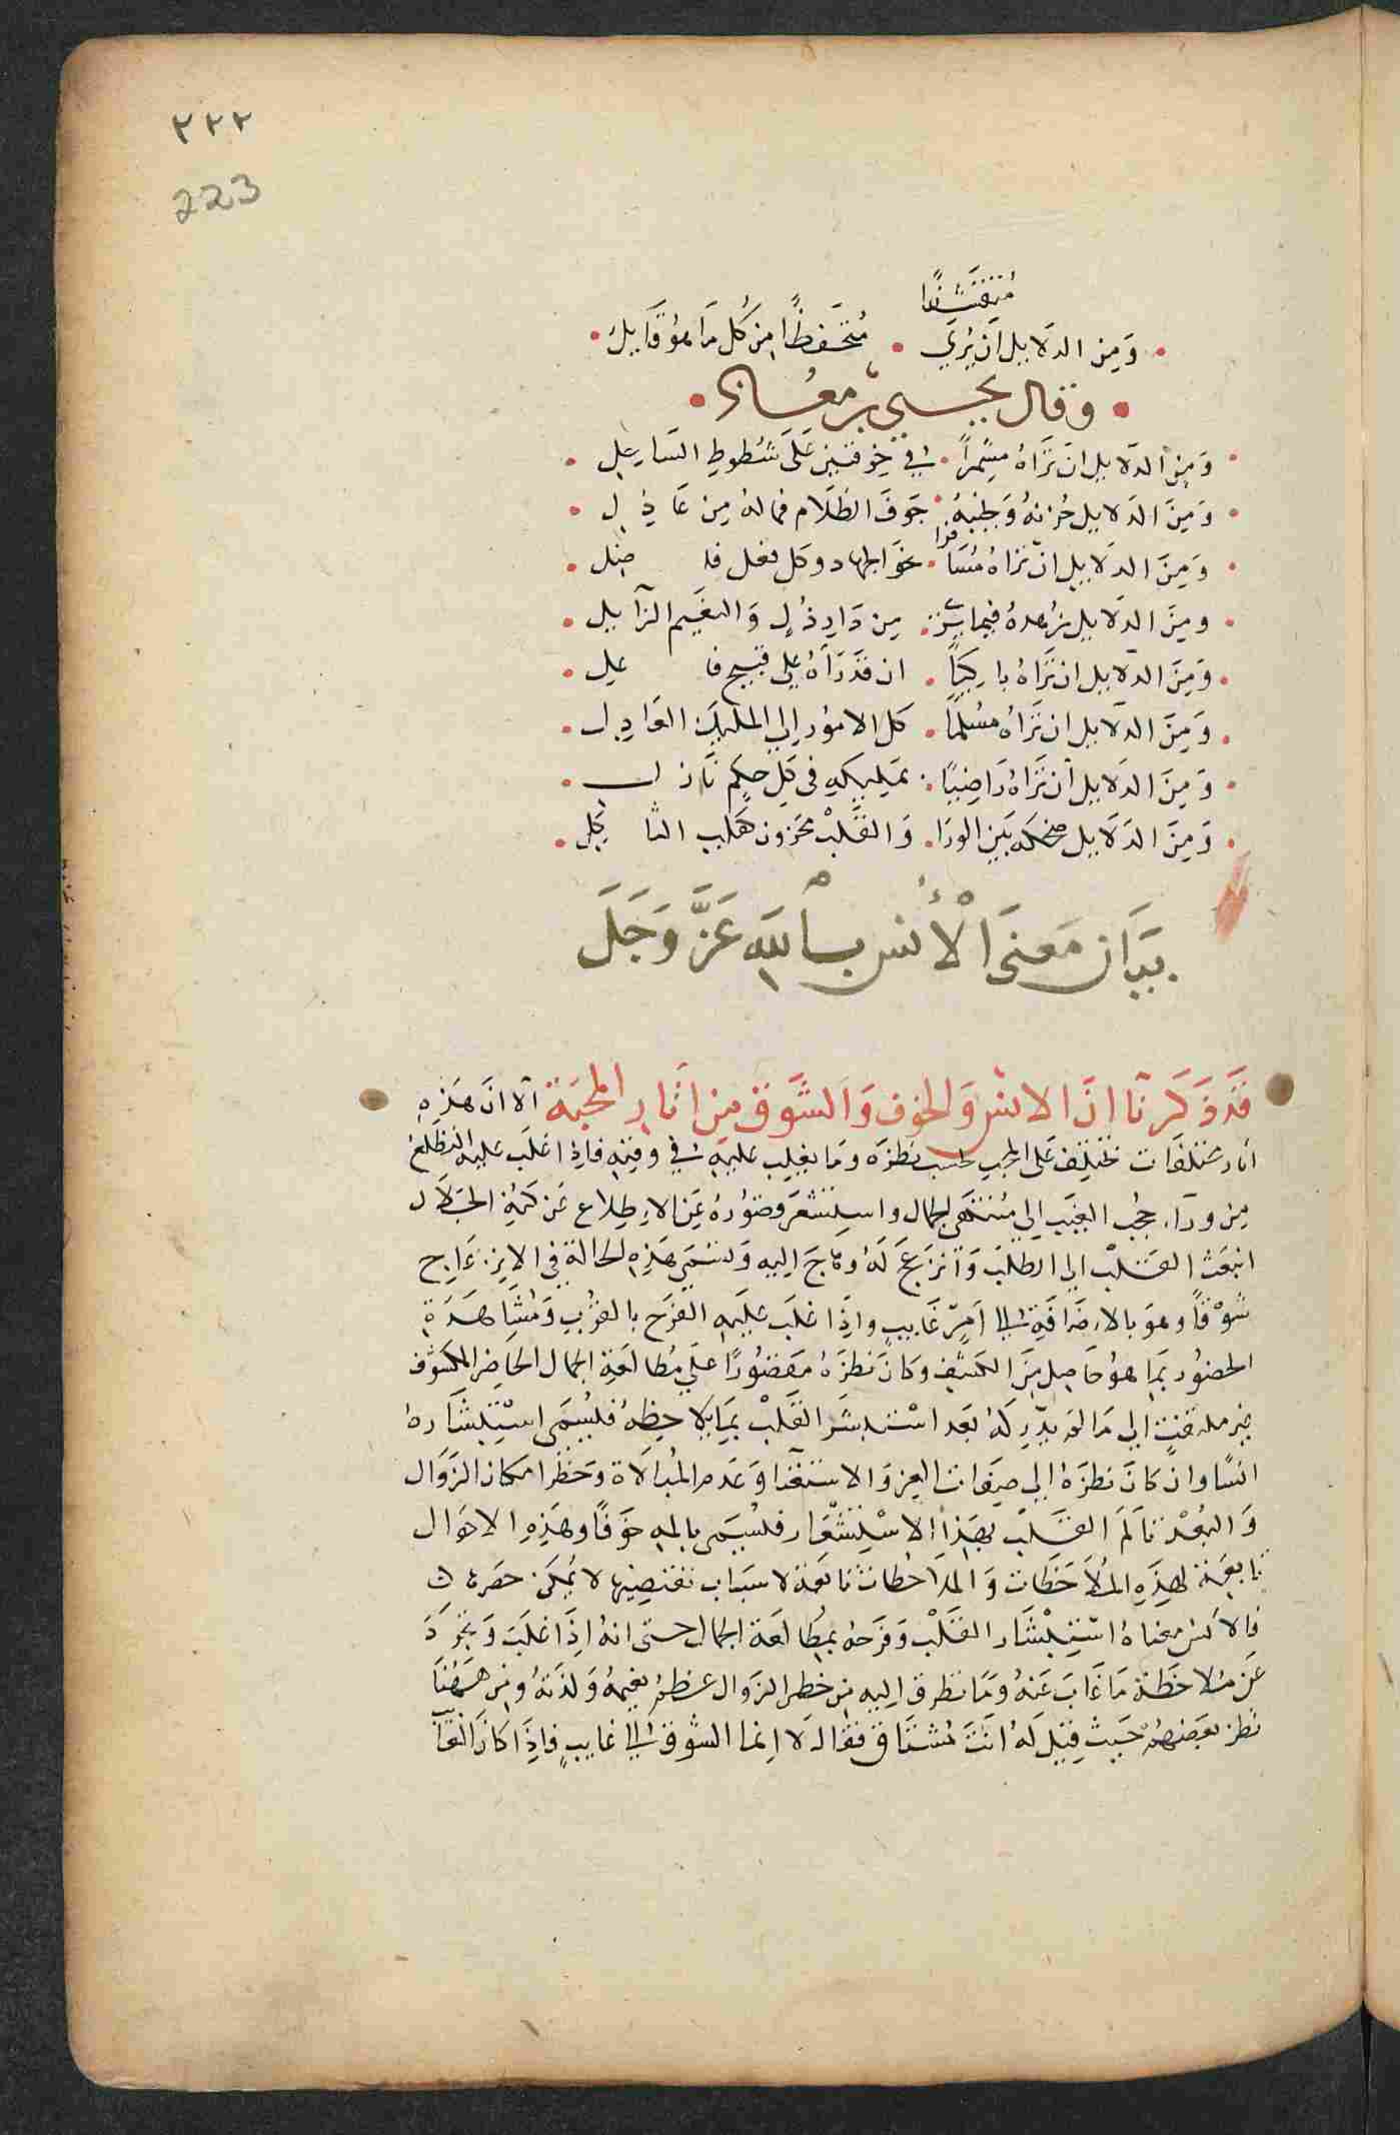 ٢٢٣
223
متقشفا
ومن الدلايل ان يري • متحفظا من كل ما هو قايل •
• وقال يحيي بن معاذ •
ومن الدلايل ان تراه مشمرا • في خرقتين على شطوط الساحل •
ومن الدلايل حزنه ونحيبه • جوف الظلام فما له من عاذل •
ومن الدلايل ان تراه مسافرا • نحو الجهاد وكل فعل فاضل •
ومن الدلايل زهده فيما يرى • من دار ذل والنعيم الزايل •
ومن الدلايل ان تراه باكيا • ان قد رآه على قبيح فاعل •
ومن الدلايل ان تراه مسلما • كل الامور إلي المليك العادل •
ومن الدلايل ان تراه راضيا • بمليكه في كل حكم نازل •
ومن الدلايل ضحكه بين الورا • والقلب محزون كقلب الثاكل •
بيان معنى الأنس بالله عز وجل
قد ذكرنا ان الانس والخوف والشوق من آثار المحبة الا ان هذه
اثار مختلفات تختلف على المحب بحسب نظره وما يغلب عليه في وقته فإذا غلب عليه التطلع
من وراء حجب الغيب إلي منتهى الجمال واستشعر قصوره عن الإطلاع عن كنه الجلال
انبعث القلب إلى الطلب وانزعج له وهاج إليه وتسمى هذه الحالة في الانزعاج
شوقا وهو بالاضافة إلى أمر غايب وإذا غلب عليه الفرح بالقرب ومشاهدة
الحضور بما هو حاصل من الكشف وكان نظره مقصورا على مطالعة الجمال الحاضر المكشوف
غير ملتفت إلى ما لم يدركه بعد استبشر القلب بما يلاحظه فيسمى استبشاره
انسا وان كان نظره إلى صفات العز والاستغنا وعدم المبالاة وخطر امكان الزوال
والبعد تألم القلب بهذا الاستشعار فيسمى تالمه خوفا وهذه الاحوال
تابعة لهذه الملاحظات والملاحظات تابعة لاسباب تقتضيها لا يمكن حصرها
فالانس معناه استبشار القلب وفرحه بمطالعة الجمال حتى انه إذا غلب وتجرد
عن ملاحظة ما غاب عنه وما تطرق إليه من خطر الزوال عظم نعيمه ولذته ومن ههنا
نظر بعضهم حيث قيل له انت مشتاق فقال لا انما الشوق إلى غايب فإذا كان الغا